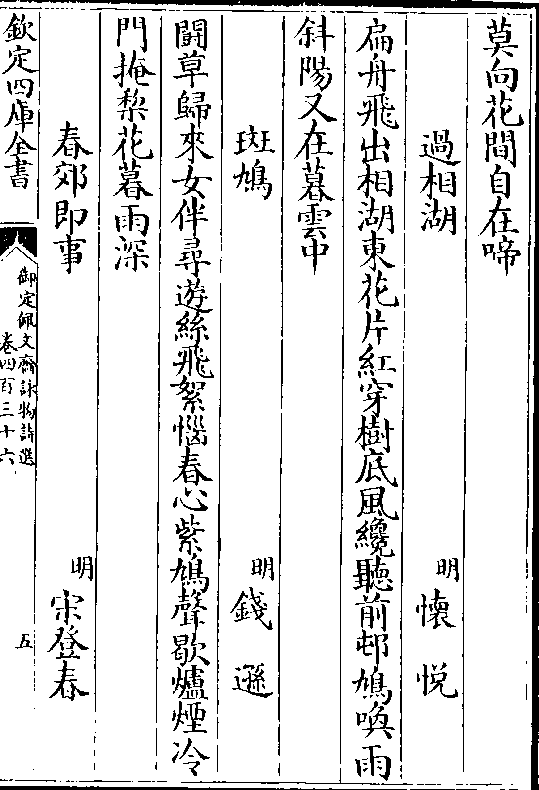 莫向花間自在啼
過相湖　明　懷悦
扁舟飛出相湖東花片紅穿樹底風纔聽前邨鳩喚雨
斜陽又在暮雲中
斑鳩　明　錢遜
鬪草歸來女伴尋遊絲飛絮惱春心紫鳩聲歇爐煙冷
門掩棃花暮雨深
春郊即事　明　宋登春
欽定四庫全書
御定佩文齋詠物詩選
卷四百三十六
五